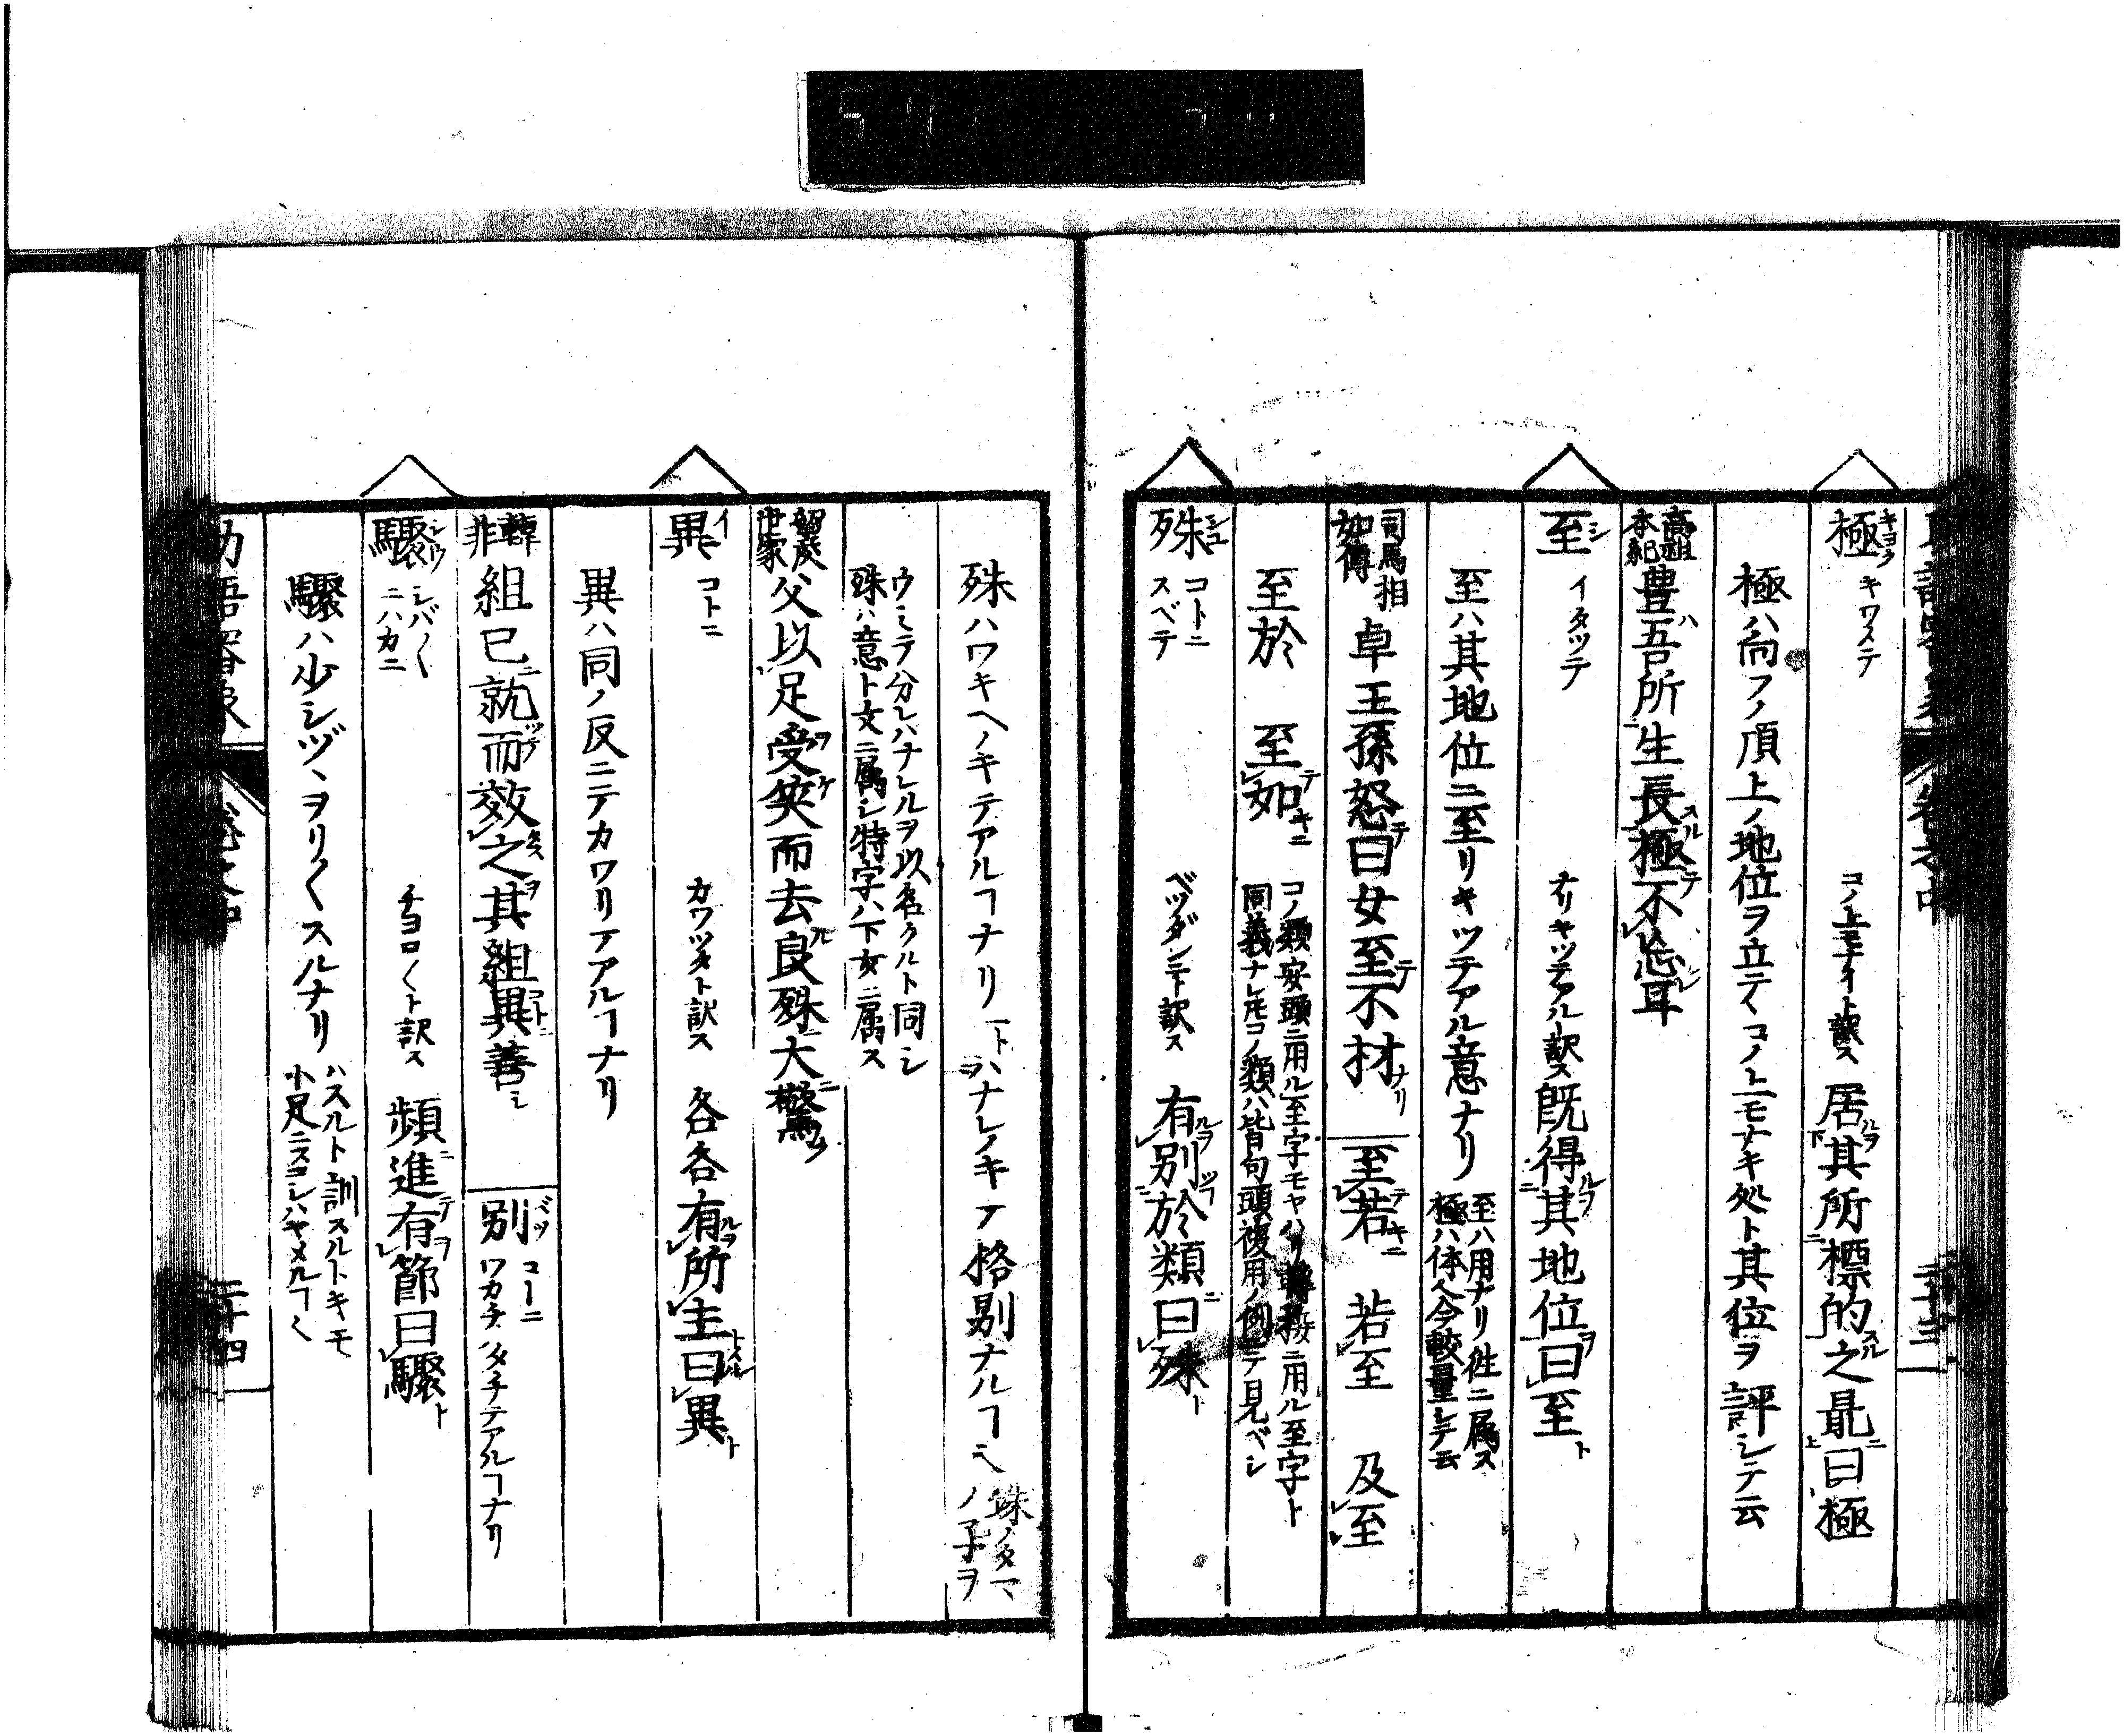 極 キヨク キワメテ コノ上モナイト訳ス 居其所標的之最曰極
極ハ尚フノ頂上ノ地位ヲ立テヽコノ上モナキ処ト其位ヲ評シテ云
高祖本紀 豊吾所生長極不忘耳
至 シ イタツテ ナリキツテアル訳ス 既得其地位曰至
至ハ其地位ニ至リキツテアル意ナリ 至ハ用ナリ往ニ属ス 極ハ体ヘ今較量シテ云
司馬相如傳 卓王孫怒曰女至不材 至若 若至 及至
至於 至如 コノ類安頭ニ用ル至字モヤハリ轉接ニ用ル至字ト 同義ナレ𪜈コノ類ハ皆句頭複用ノ例ニテ見ベシ
殊 シユ コトニ スベテ ベツダンテ訳ス 有別於類曰殊
殊ハワキヘノキテアルヿナリ ハナレノキテ格別ナルヿ
ウミヲ分レハナレルヲ以名クルト同シ 殊ハ意ト文ニ属シ特字ハ下文ニ属ス
留侯世家 父以足受笑而去良殊大驚
異 イ コトニ カワツタト訳ス 各各有所主曰異
異ハ同ノ反ニテカワリテアルヿナリ
韓非 組已就而效之其組異善 別 ベツ コトニ ワカチハタチテアルヿナリ
驟 シウ シバ〱 ニハカニ チヨロ〱ト訳ス 頻進有節曰驟
驟ハ少シヅヽヲリ〱スルナリ ハスルト訓スルトキモ 小足ニスコシハヤメルヿ
二十四